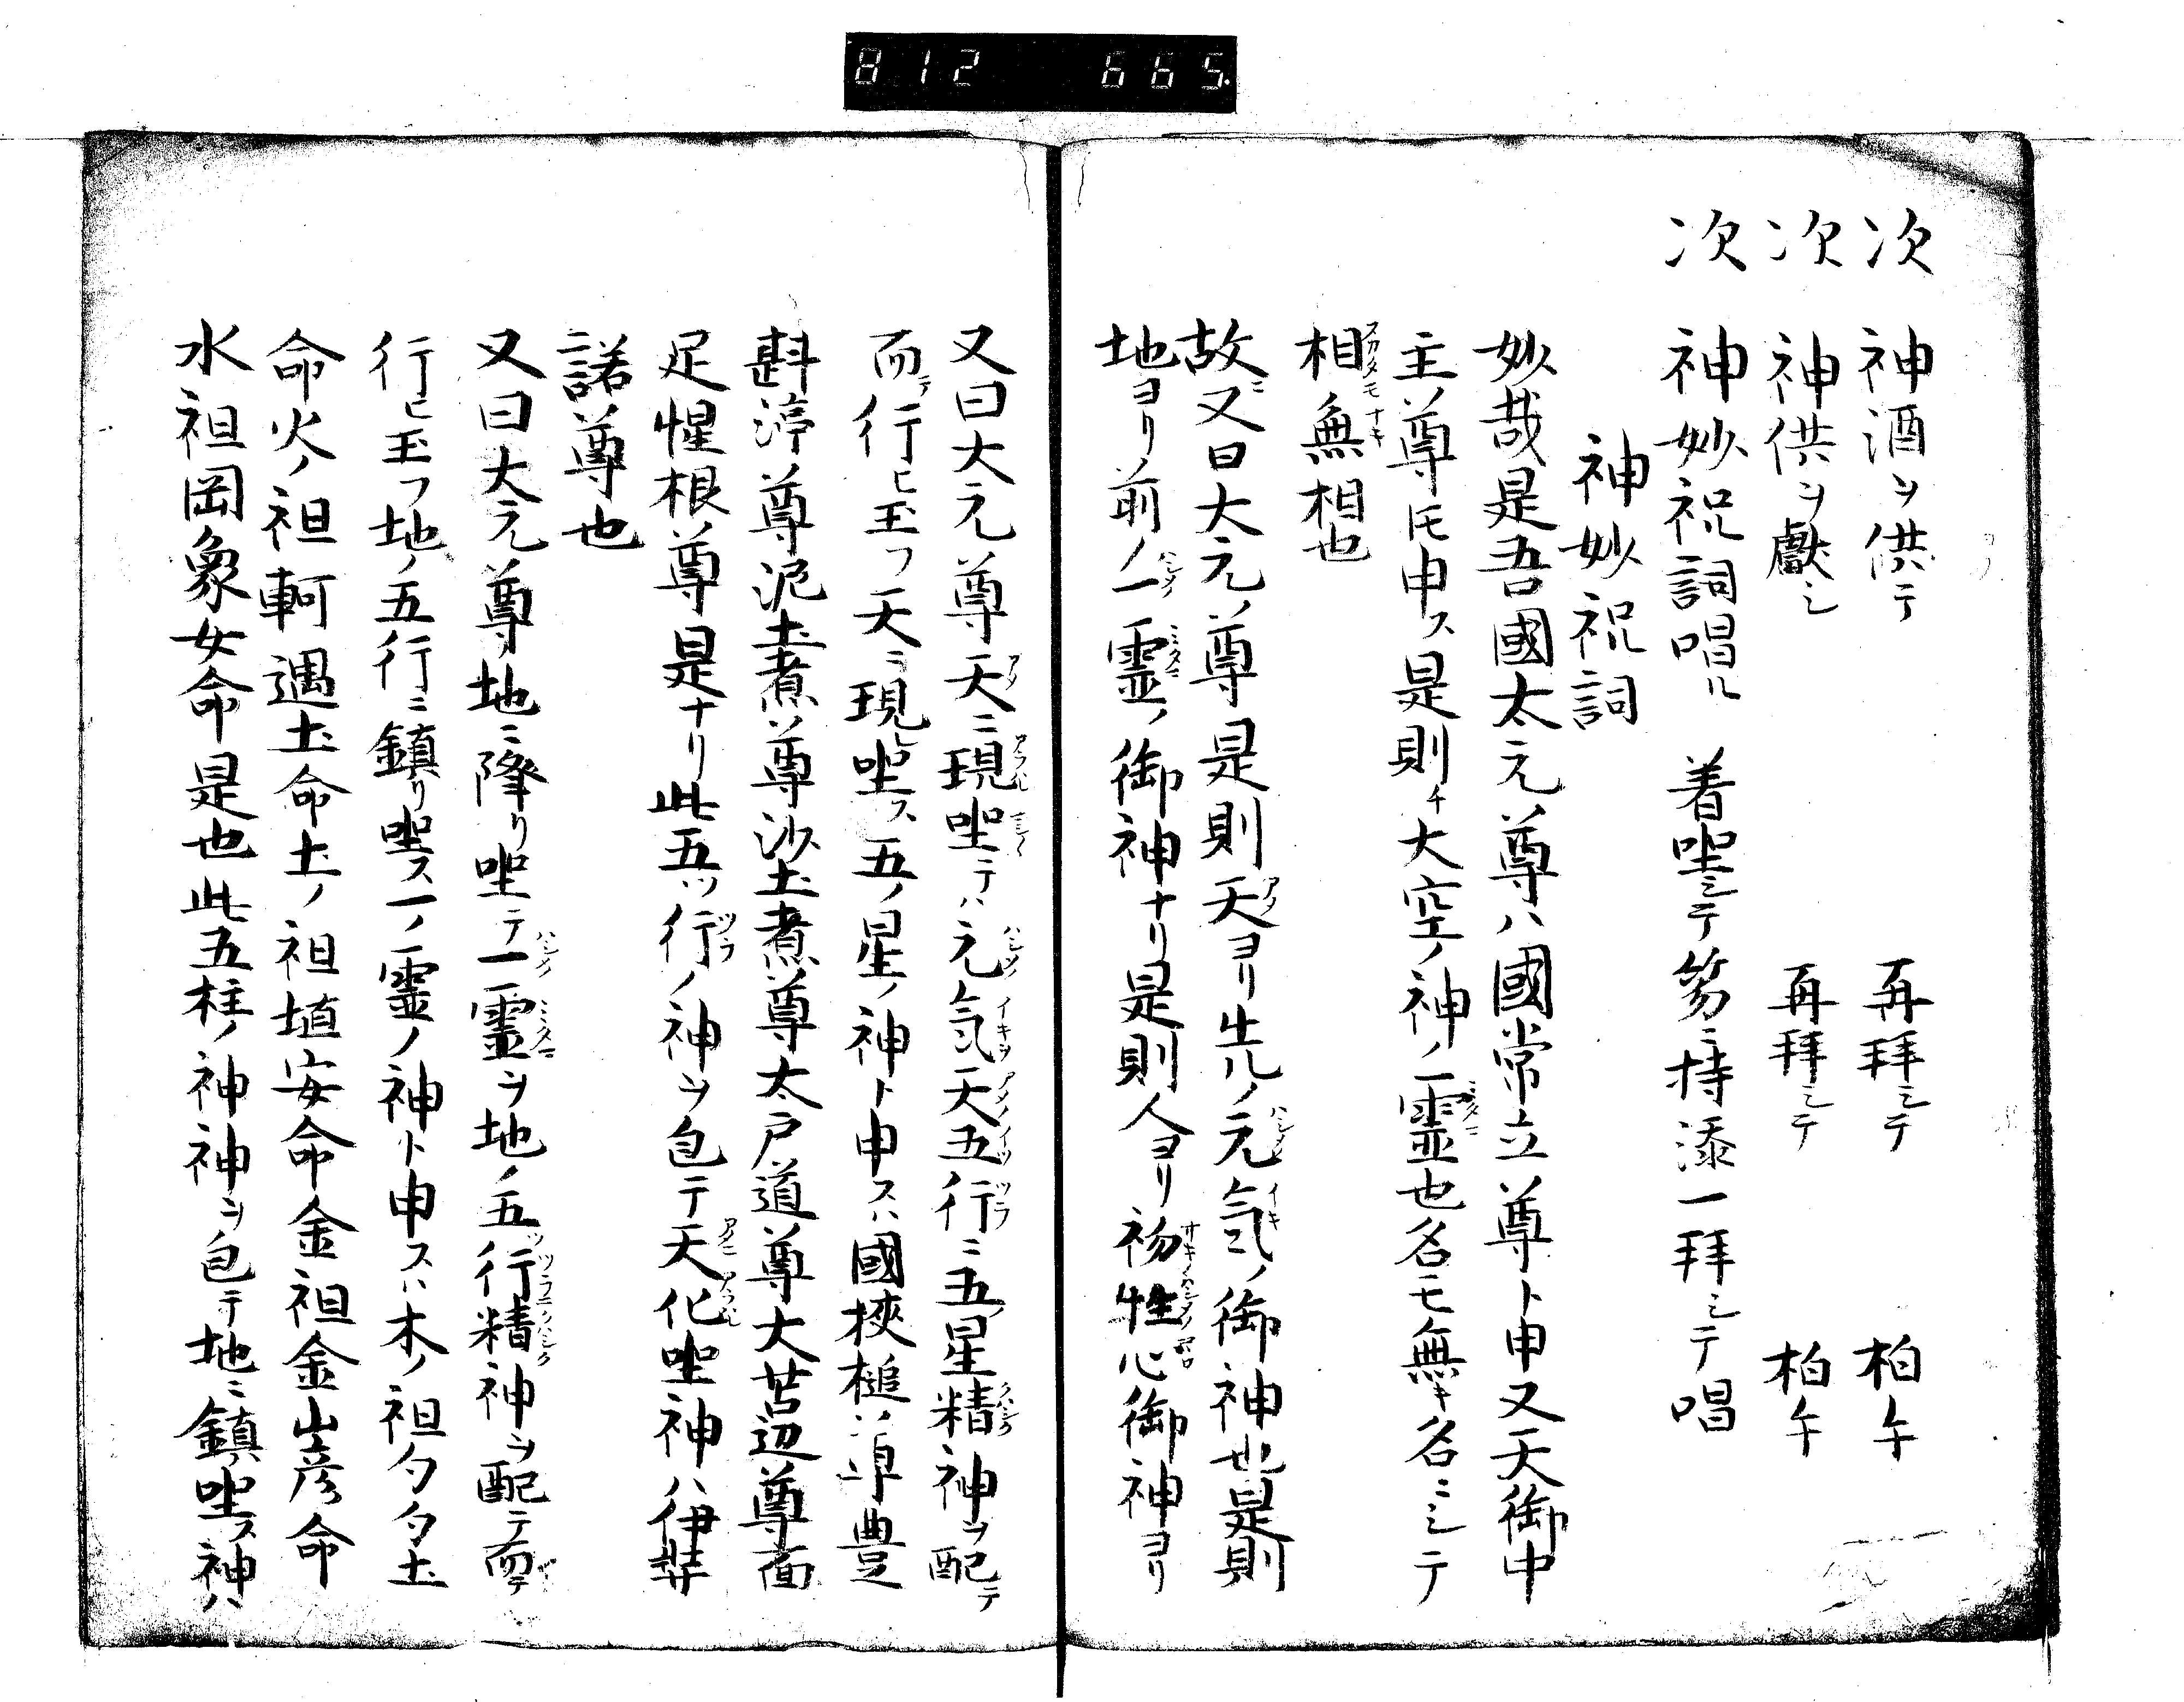 812 665
次 神酒ヲ供テ 再拜シテ 柏午
次 神供ヲ獻シ 再拜シテ 柏午
次 神妙祝詞唱ル 着坐シテ笏ニ持添一拜シテ唱
神妙祝詞
妙哉是吾國太元尊ハ國常立尊ト申又天御中
主ノ尊トモ申ス是則チ大空ノ神ノ一霊也名モ無キ名ニシテ
相無相也
故ニ又曰大元ノ尊是則天ヨリ先ノ元気ノ御神也是則
地ヨリ前ノ一霊ノ御神ナリ是則人ヨリ初性心御神ヨリ
又曰大元尊天ニ現坐テハ元気天五行ニ五星精神ヲ配テ
而テ行ヒ玉フ天ニ現坐ス五ノ星ノ神ト申スハ國狹槌尊豊
斟渟尊泥土煮尊沙土煮尊太戸道尊大苫辺尊面
足惶根尊是ナリ此五ツ行ノ神ヲ包テ天化坐神ハ伊弉
諾尊也
又曰大元尊地ニ降リ坐テ一霊ヲ地ノ五行精神ヲ配テ而テ
行ヒ玉フ地ノ五行ニ鎮リ坐ス一ノ霊ノ神ト申スハ木ノ祖勾勾土
命火ノ祖軻遇土命土ノ祖埴安命金祖金山彦命
水祖岡象女命是也此五柱ノ神神ヲ包テ地ニ鎮坐ス神ハ